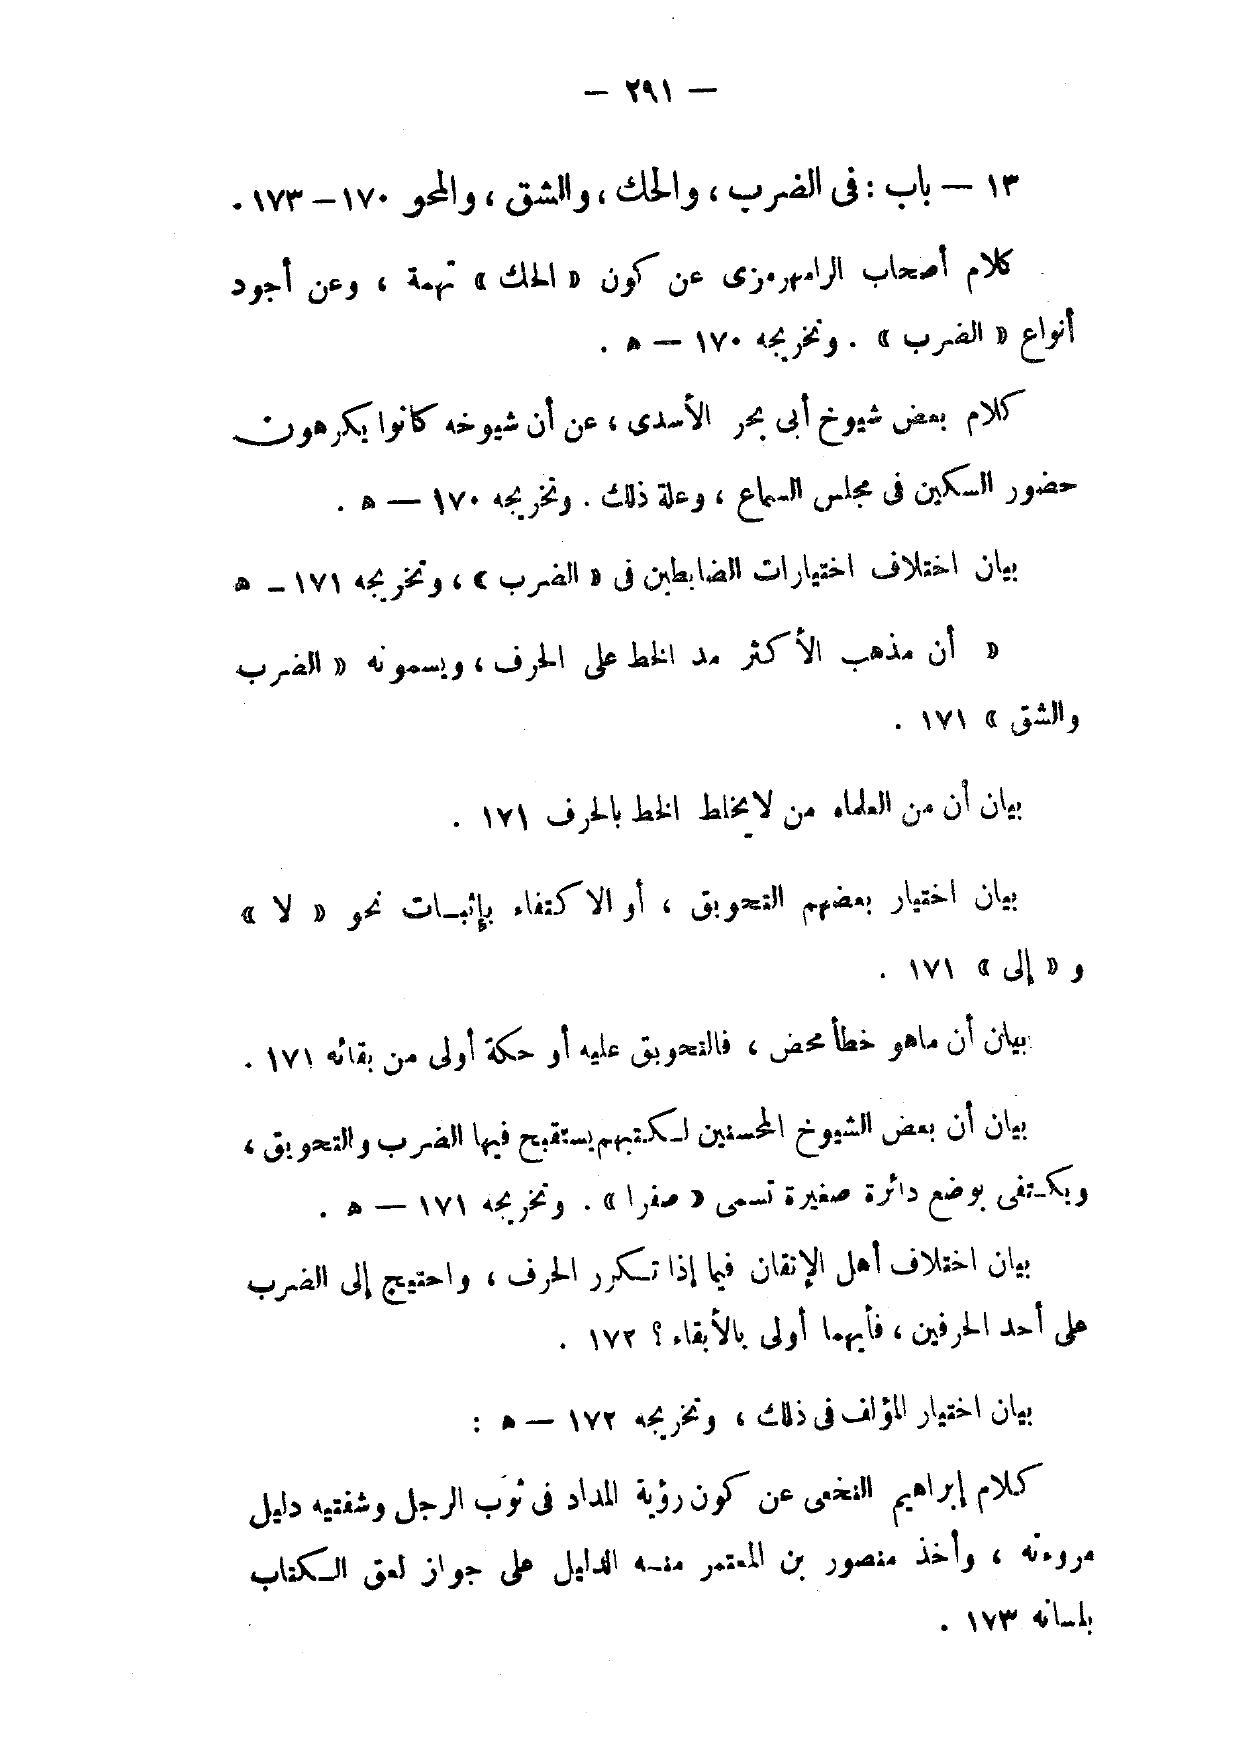 — ٢٩١ —
١٣ — باب : فى الضرب ، والحك ، والشق ، والمحو ١٧٠ – ١٧٣ .
كلام أصحاب الرامهرمزى عن كون « الحك » تهمة ، وعن أجود
أنواع « الضرب » . وتخريجه ١٧٠ — ه .
كلام بعض شيوخ أبى بحر الأسدى ، عن أن شيوخه كانوا يكرهون
حضور السكين فى مجلس السماع ، وعلة ذلك . وتخريجه ١٧٠ — ه .
بيان اختلاف اختيارات الضابطين فى « الضرب » ، وتخريجه ١٧١ – ه
« أن مذهب الأكثر مد الخط على الحرف ، ويسمونه « الضرب
والشق » ١٧١ .
بيان أن من العلماء من لا يخلط الخط بالحرف ١٧١ .
بيان اختيار بعضهم التحويق ، أو الاكتفاء بإثبات نحو « لا »
و « إلى » ١٧١ .
بيان أن ماهو خطأ محض ، فالتحويق عليه أو حكة أولى من بقائه ١٧١ .
بيان أن بعض الشيوخ المحسنين لكتبهم يستقبح فيها الضرب والتحويق ،
ويكتفى بوضع دائرة صغيرة تسمى « صفرا » . وتخريجه ١٧١ — ه .
بيان اختلاف أهل الإتقان فيما إذا تكرر الحرف ، واحتيج إلى الضرب
على أحد الحرفين ، فأيهما أولى بالأبقاء ؟ ١٧٢ .
بيان اختيار المؤلف فى ذلك ، وتخريجه ١٧٢ — ه :
كلام إبراهيم النخعى عن كون رؤية المداد فى ثوب الرجل وشفتيه دليل
مروءته ، وأخذ منصور بن المعتمر منه الدليل على جواز لعق الكتاب
بلسانه ١٧٣ .